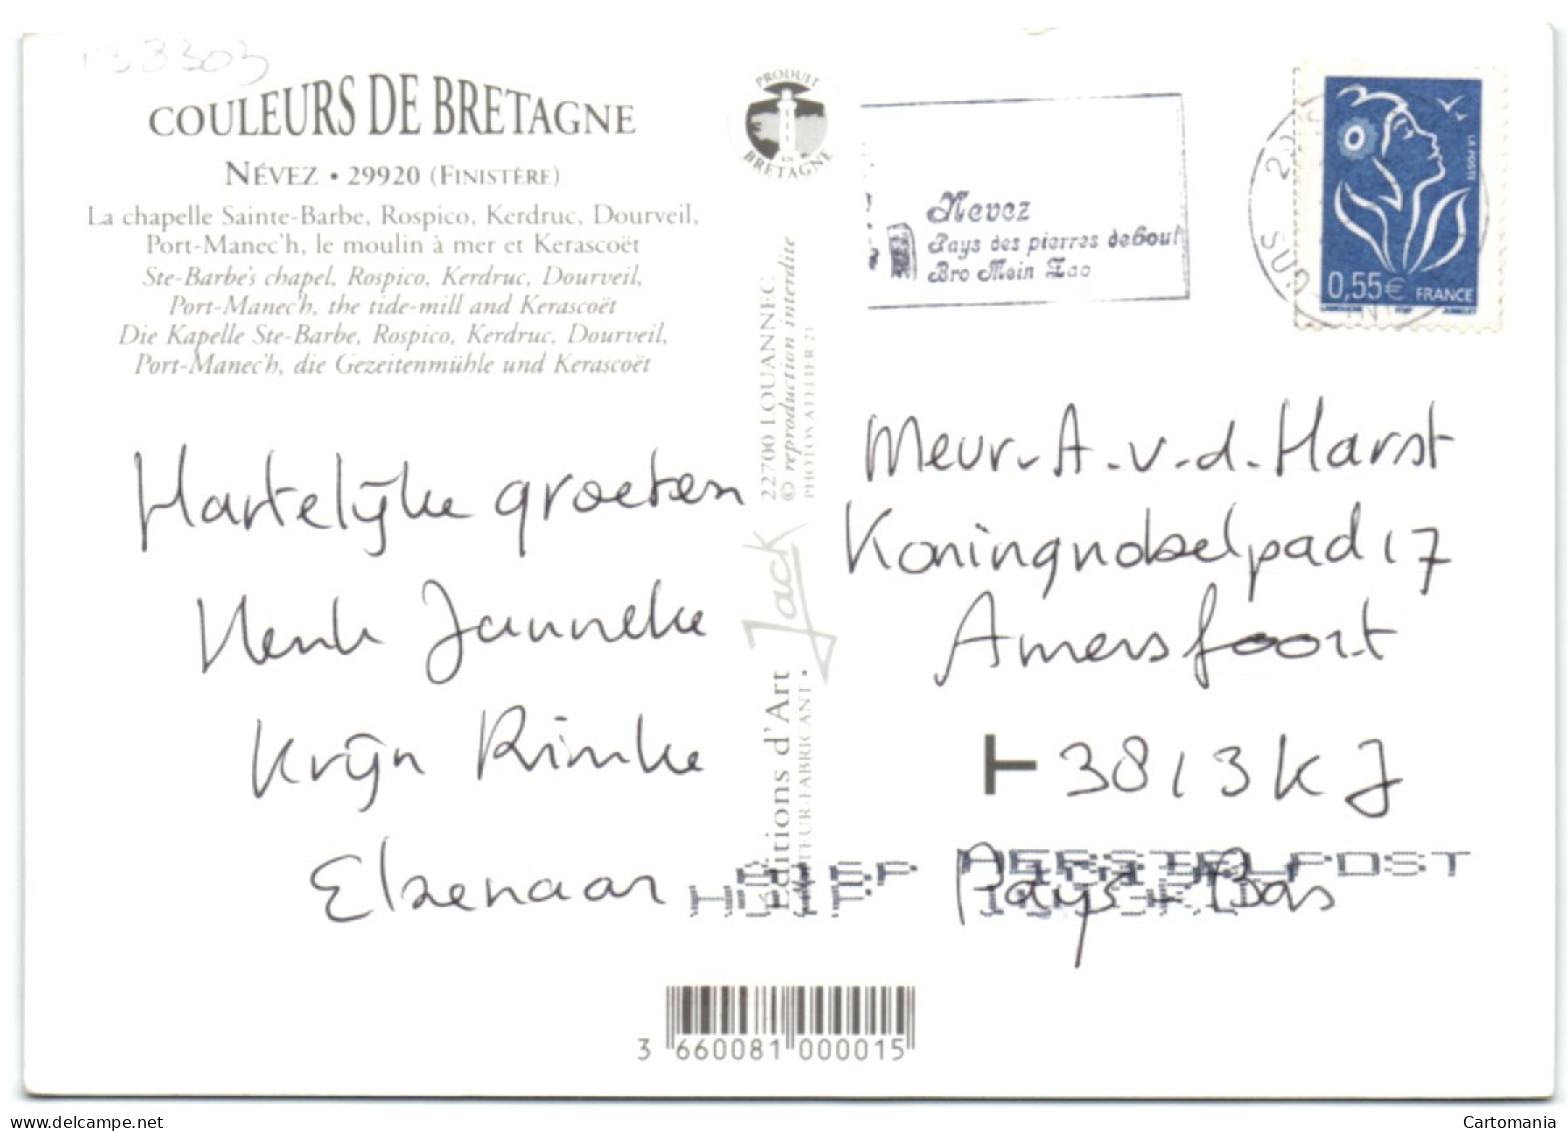 COULEURS DE BRETAGNE
NÉVEZ • 29920 (FINISTÈRE)
La chapelle Sainte-Barbe, Rospico, Kerdruc, Dourveil,
Port-Manec'h, le moulin à mer et Kerascoët
Ste-Barbe's chapel, Rospico, Kerdruc, Dourveil,
Port-Manec'h, the tide-mill and Kerascoët
Die Kapelle Ste-Barbe, Rospico, Kerdruc, Dourveil,
Port-Manec'h, die Gezeitenmühle und Kerascoët
Hartelijke groeten
Henk Janneke
Krijn Rimke
Elzenaar
PRODUIT
EN
BRETAGNE
22700 LOUANNEC
© reproduction interdite
PHOTOS ATELIER 21
Jack
Éditions d'Art
FABRICANT •
Nevez
Pays des pierres debout
Bro Mein Zao
LA POSTE
0,55€ FRANCE
Meur. A. v. d. Harst
Koningnobelpad 17
Amersfoort
3813KJ
Pays-Bas
POST
3 660081 000015
Cartomania